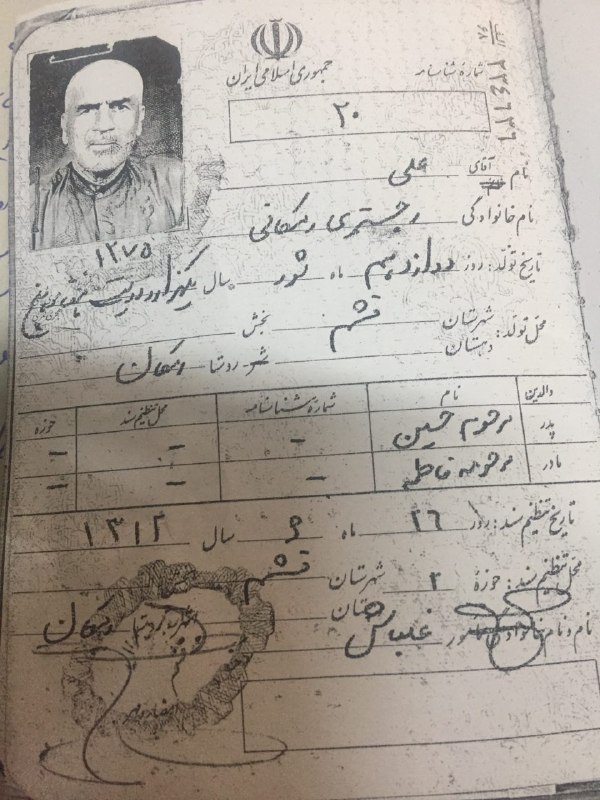 جمهوری اسلامی ایران
شمارهٔ شناسنامه
الف/۶۸
۲۲۴۶۲۶
۲۰
نام آقای علی
نام خانوادگی رجستری رمکانی
۱۲۷۵
تاریخ تولد: روز دوازدهم ماه ثور سال یکهزار و دویست هفتاد و پنج
محل تولد: شهرستان قشم بخش
دهستان شهر روستا رمکان
والدین نام شمارهٔ شناسنامه محل تنظیم سند حوزه
پدر مرحوم حسین – – –
مادر مرحومه فاطمه – – –
تاریخ تنظیم سند: روز ۲۶ ماه ۶ سال ۱۳۱۲
محل تنظیم سند: حوزهٔ ۲ شهرستان قشم
رمکان
نام و نام خانوادگی